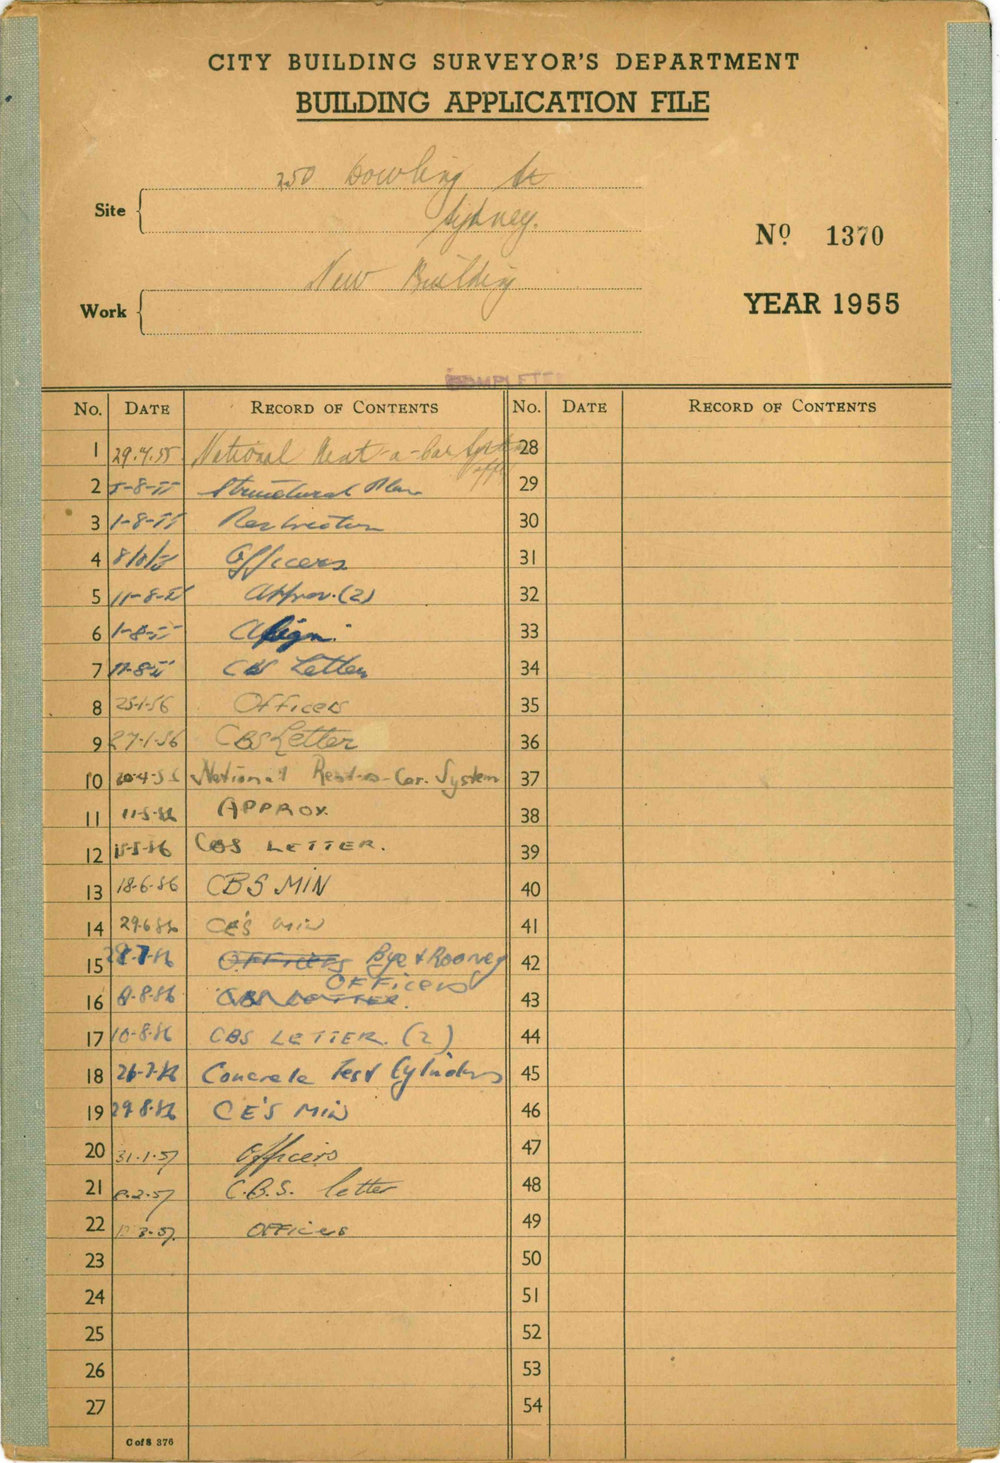 CITY BUILDING SURVEYOR'S DEPARTMENT
BUILDING APPLICATION FILE
250 Dowling St
Site
Sydney.
Nº 1370
New Building
Work
YEAR 1955
COMPLETE
No. DATE RECORD OF CONTENTS No. DATE RECORD OF CONTENTS
1 29.4.55 National Rent-a-Car System 28
2 5-8-55 Structural Plan 29
3 1-8-55 30
4 Officers 31
5 11-8-55 Approv. (2) 32
6 1-8-55 Align. 33
7 11-8-55 CBS Letter 34
8 25-1-56 Officers 35
9 27-1-56 CBS Letter 36
10 National Rent-a-Car. System 37
11 11-5-56 APPROX 38
12 15-5-56 CBS LETTER. 39
13 18-6-56 CBS MIN 40
14 29.6.56 CE'S MIN 41
15 OFFICERS Bye & Rooney 42
OFFICERS
16 8-8-56 CBS LETTER. 43
17 10-8-56 CBS LETTER. (2) 44
18 26-7-56 Concrete Test Cylinders 45
19 29-8-56 CE'S MIN 46
20 31.1.57 Officers 47
21 8.2.57 C.B.S. letter 48
22 OFFICERS 49
23 50
24 51
25 52
26 53
27 54
C of S 376